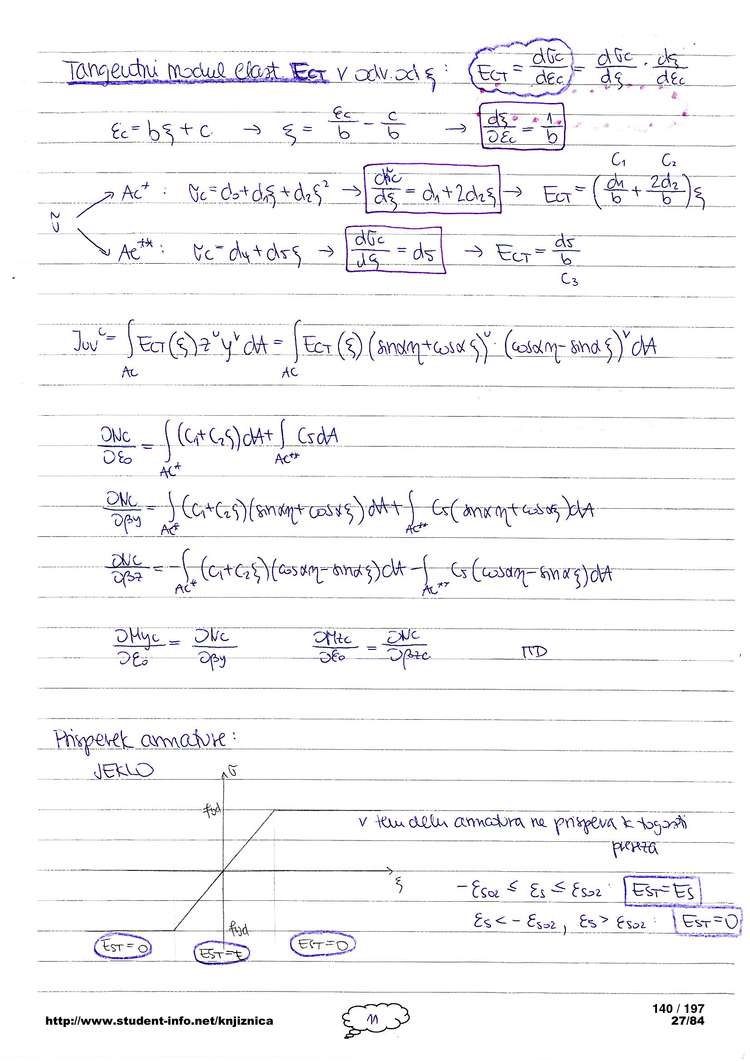 Tangentni modul elast. ECT v odv. od ξ: ECT = dσc/dεc = dσc/dξ · dξ/dεc
εc = bξ + c → ξ = εc/b - c/b → dξ/∂εc = 1/b
C1 C2
Ac+ : σc = d0 + d1ξ + d2ξ² → dσc/dξ = d1 + 2d2ξ → ECT = (d1/b + 2d2/b)ξ
σ
Ac++ : σc = d4 + d5ξ → dσc/dξ = d5 → ECT = d5/b
C3
Juv^c = ∫Ac ECT(ξ) z^u y^v dA = ∫Ac ECT(ξ) (sinαη + cosαξ)^u · (cosαη - sinαξ)^v dA
∂Nc/∂ε0 = ∫Ac+ (C1 + C2ξ)dA + ∫Ac++ C5 dA
∂Nc/∂βy = ∫Ac+ (C1 + C2ξ)(sinαη + cosαξ)dA + ∫Ac++ C5(sinαη + cosαξ)dA
∂Nc/∂βz = -∫Ac+ (C1 + C2ξ)(cosαη - sinαξ)dA - ∫Ac++ C5(cosαη - sinαξ)dA
∂Myc/∂ε0 = ∂Nc/∂βy ∂Mzc/∂ε0 = ∂Nc/∂βzc ITD
Prispevek armature:
JEKLO σ
fyd
v tem delu armatura ne prispeva k togosti
prereza
ξ
-εs02 ≤ εs ≤ εs02: EST = Es
εs < -εs02, εs > εs02: EST = 0
fyd
EST = 0 EST = E EST = 0
140 / 197
http://www.student-info.net/knjiznica 11 27/84